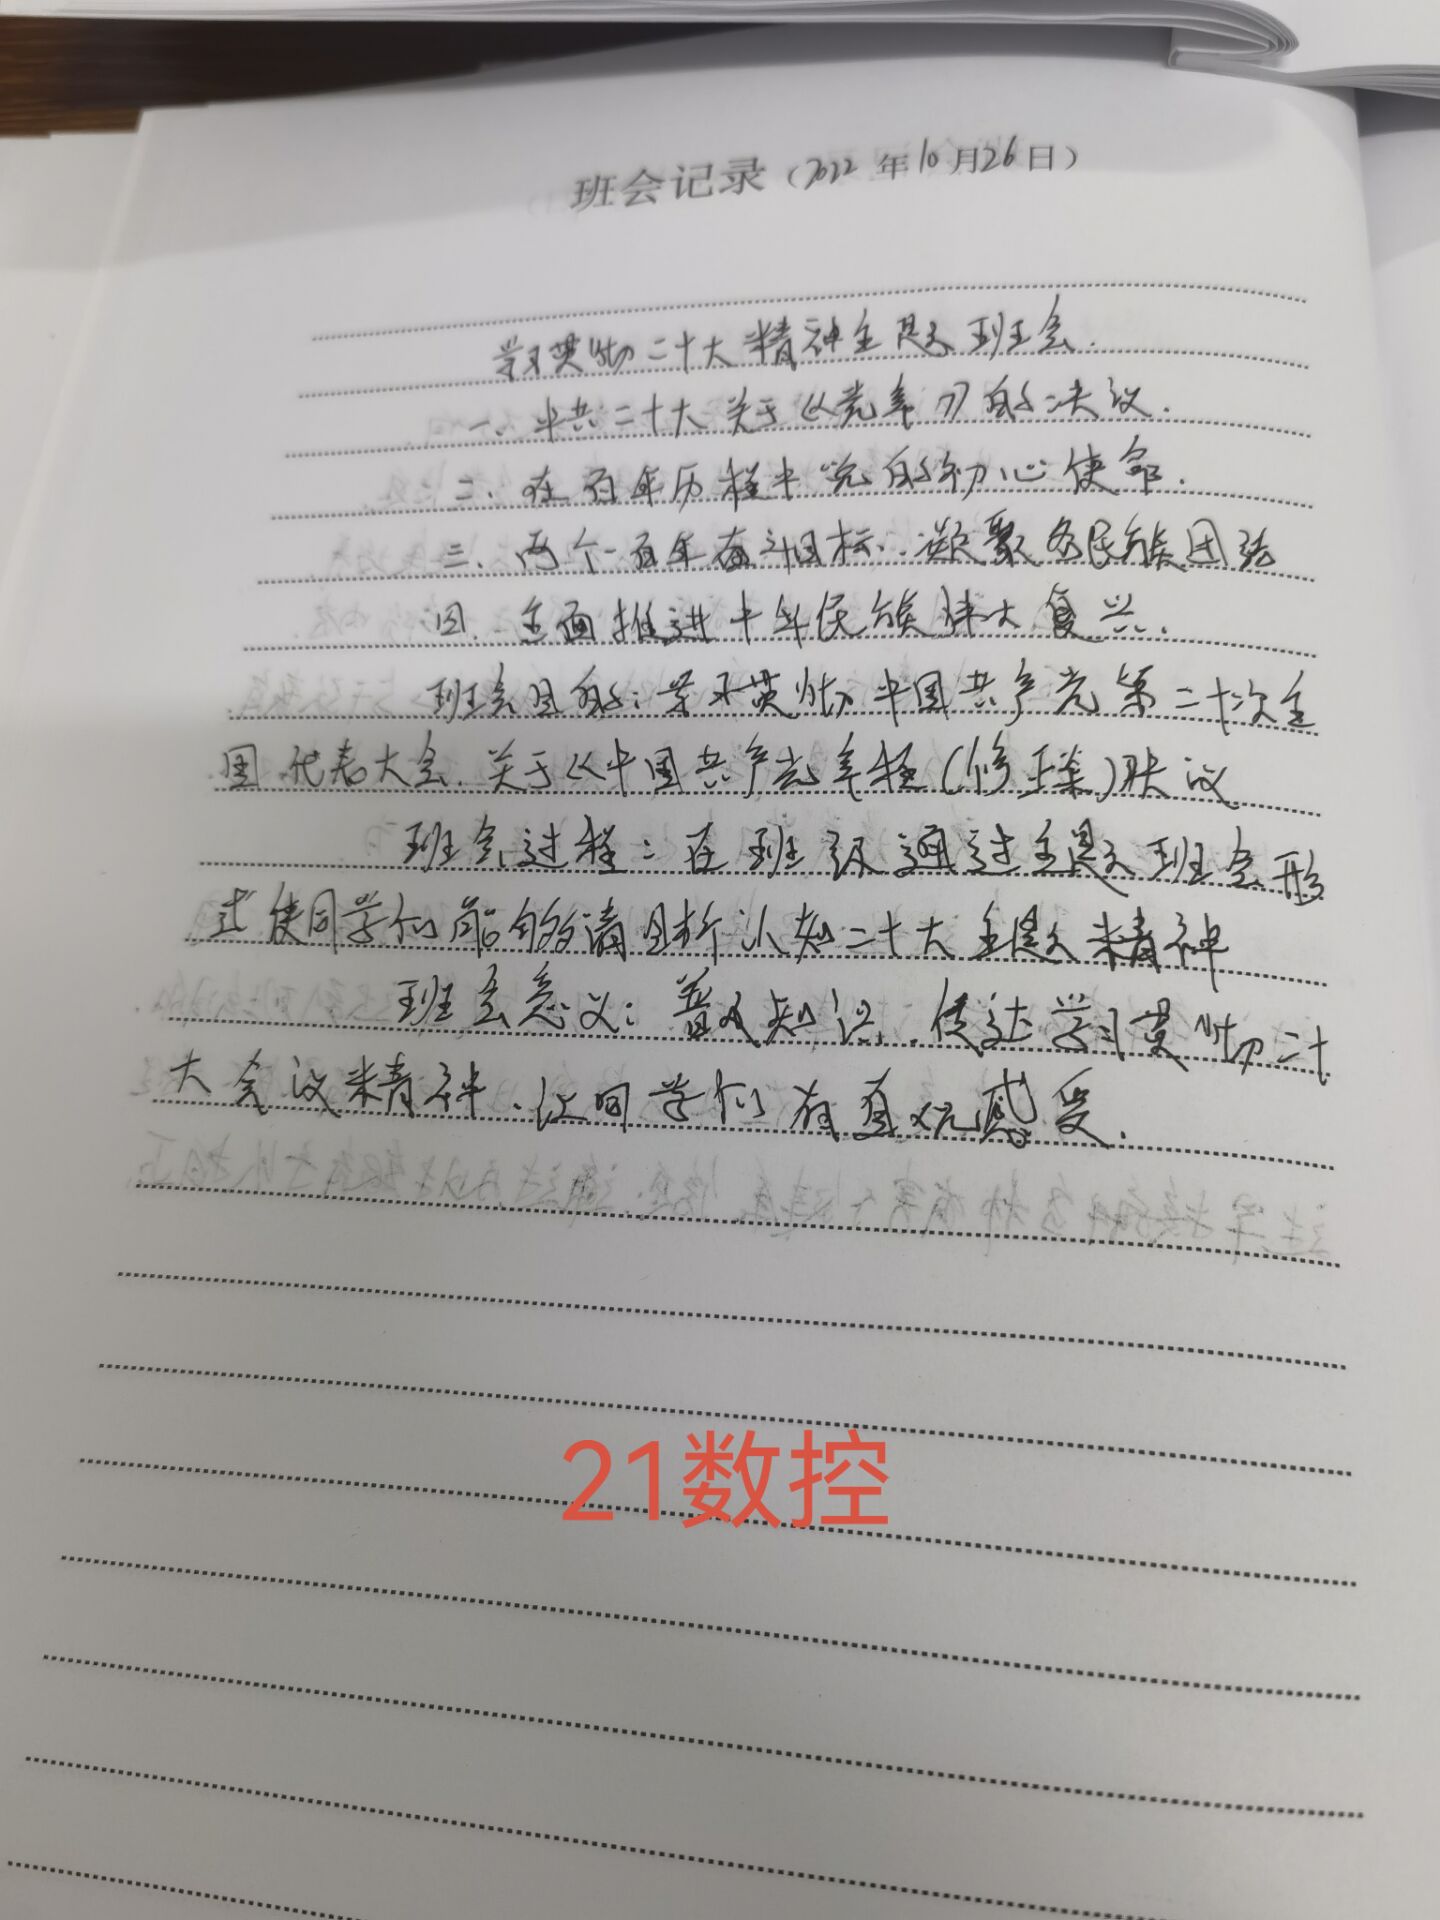 班会记录（2022年10月26日）
学习贯彻二十大精神主题班会.
一、中共二十大关于《党章》的决议.
二、在百年历程中党的初心使命.
三、两个一百年奋斗目标、凝聚各民族团结
四、全面推进中华民族伟大复兴.
班会目的：学习贯彻中国共产党第二十次全
国代表大会、关于《中国共产党章程(修正案)决议
班会过程：在班级通过主题班会形
式使同学们能够清晰认知二十大主题精神
班会意义：普及知识、传达学习贯彻二十
大会议精神、让同学们有直观感受.
21数控